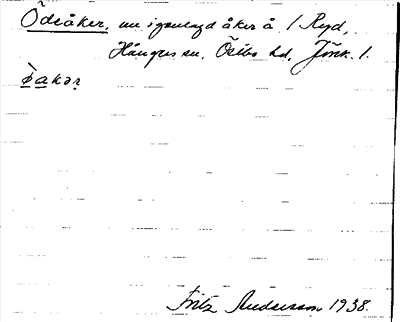 Ödeåker, nu igenlagd åker å 1 Ryd,
Hångers sn. Östbo hd, Jönk. l.
Fritz Andersson 1938.